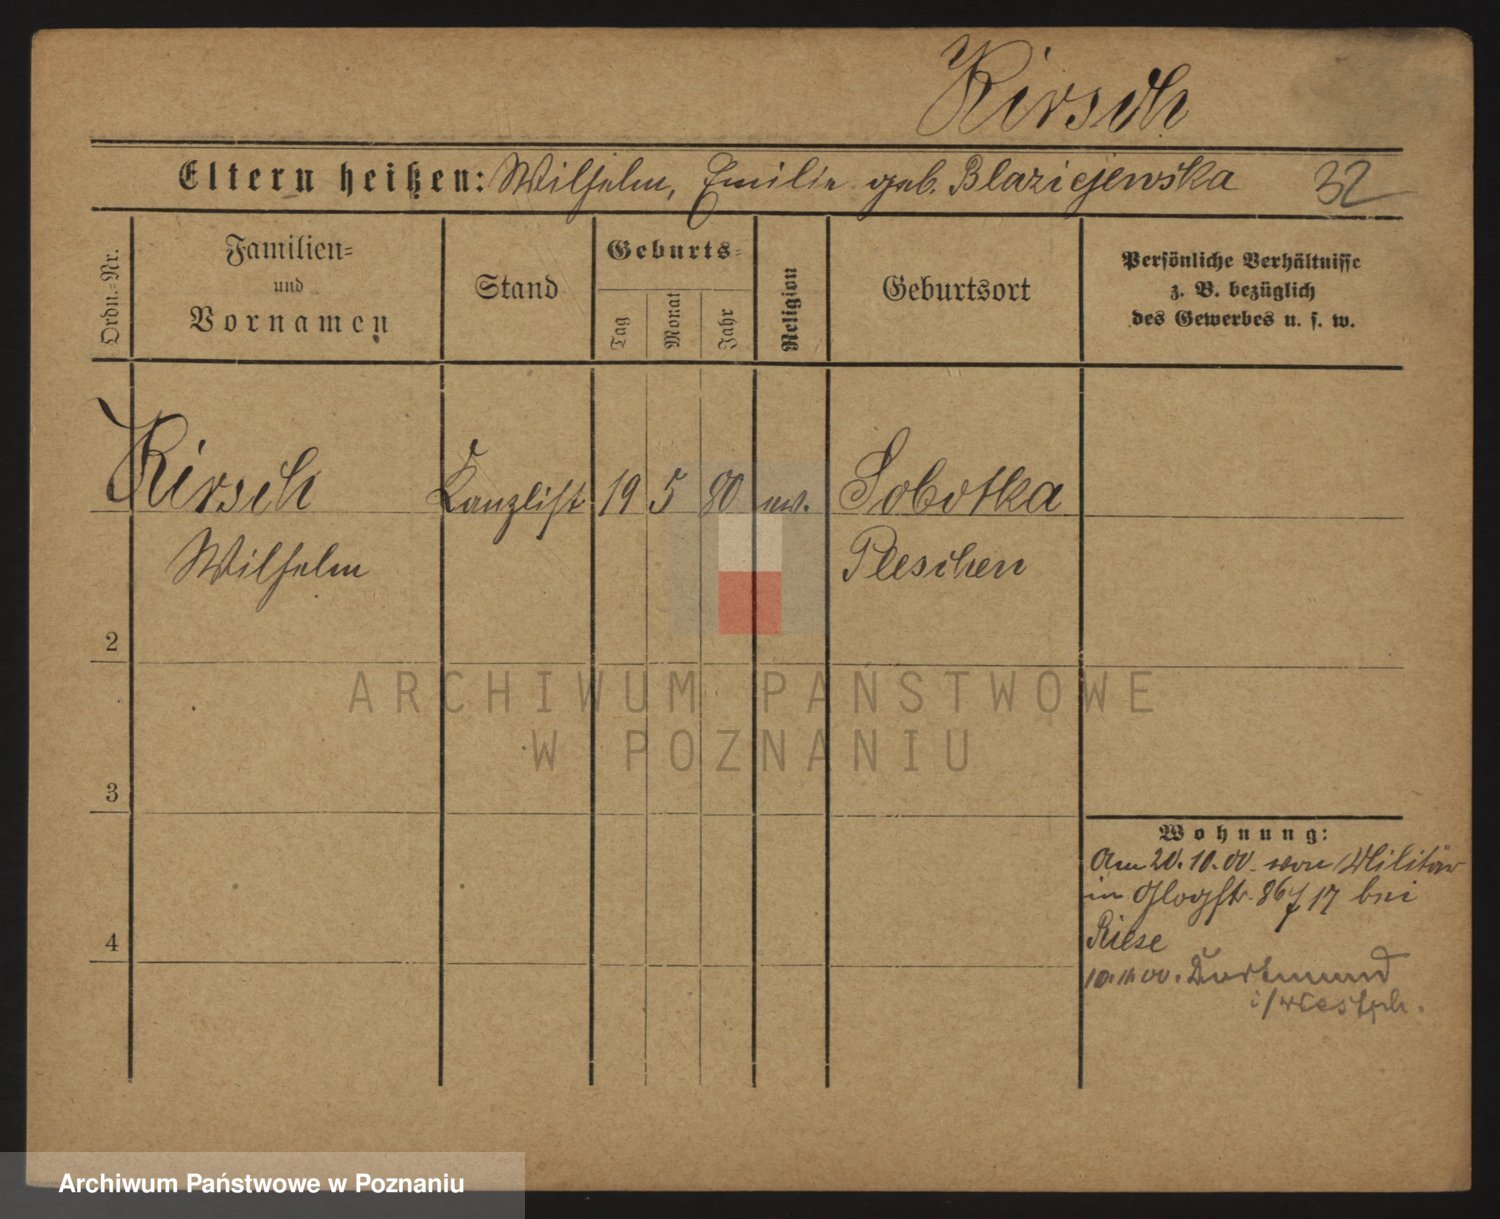 Kirsch
Eltern heißen: Wilhelm, Emilie geb. Blaziejewska 32
Ordn.-Nr.
Familien-
und
Vornamen
Stand
Geburts-
Tag
Monat
Jahr
Religion
Geburtsort
Persönliche Verhältnisse
z. B. bezüglich
des Gewerbes u. s. w.
Kirsch Kanzlist 19 5 80 ev. Sobotka
Wilhelm Pleschen
2
ARCHIWUM PAŃSTWOWE
W POZNANIU
3
Wohnung:
Am 20.10.00. von Militär
in Glogstr. 86 17 bei
Riese
4
10.11.00. Dortmund
i/Westph.
Archiwum Państwowe w Poznaniu